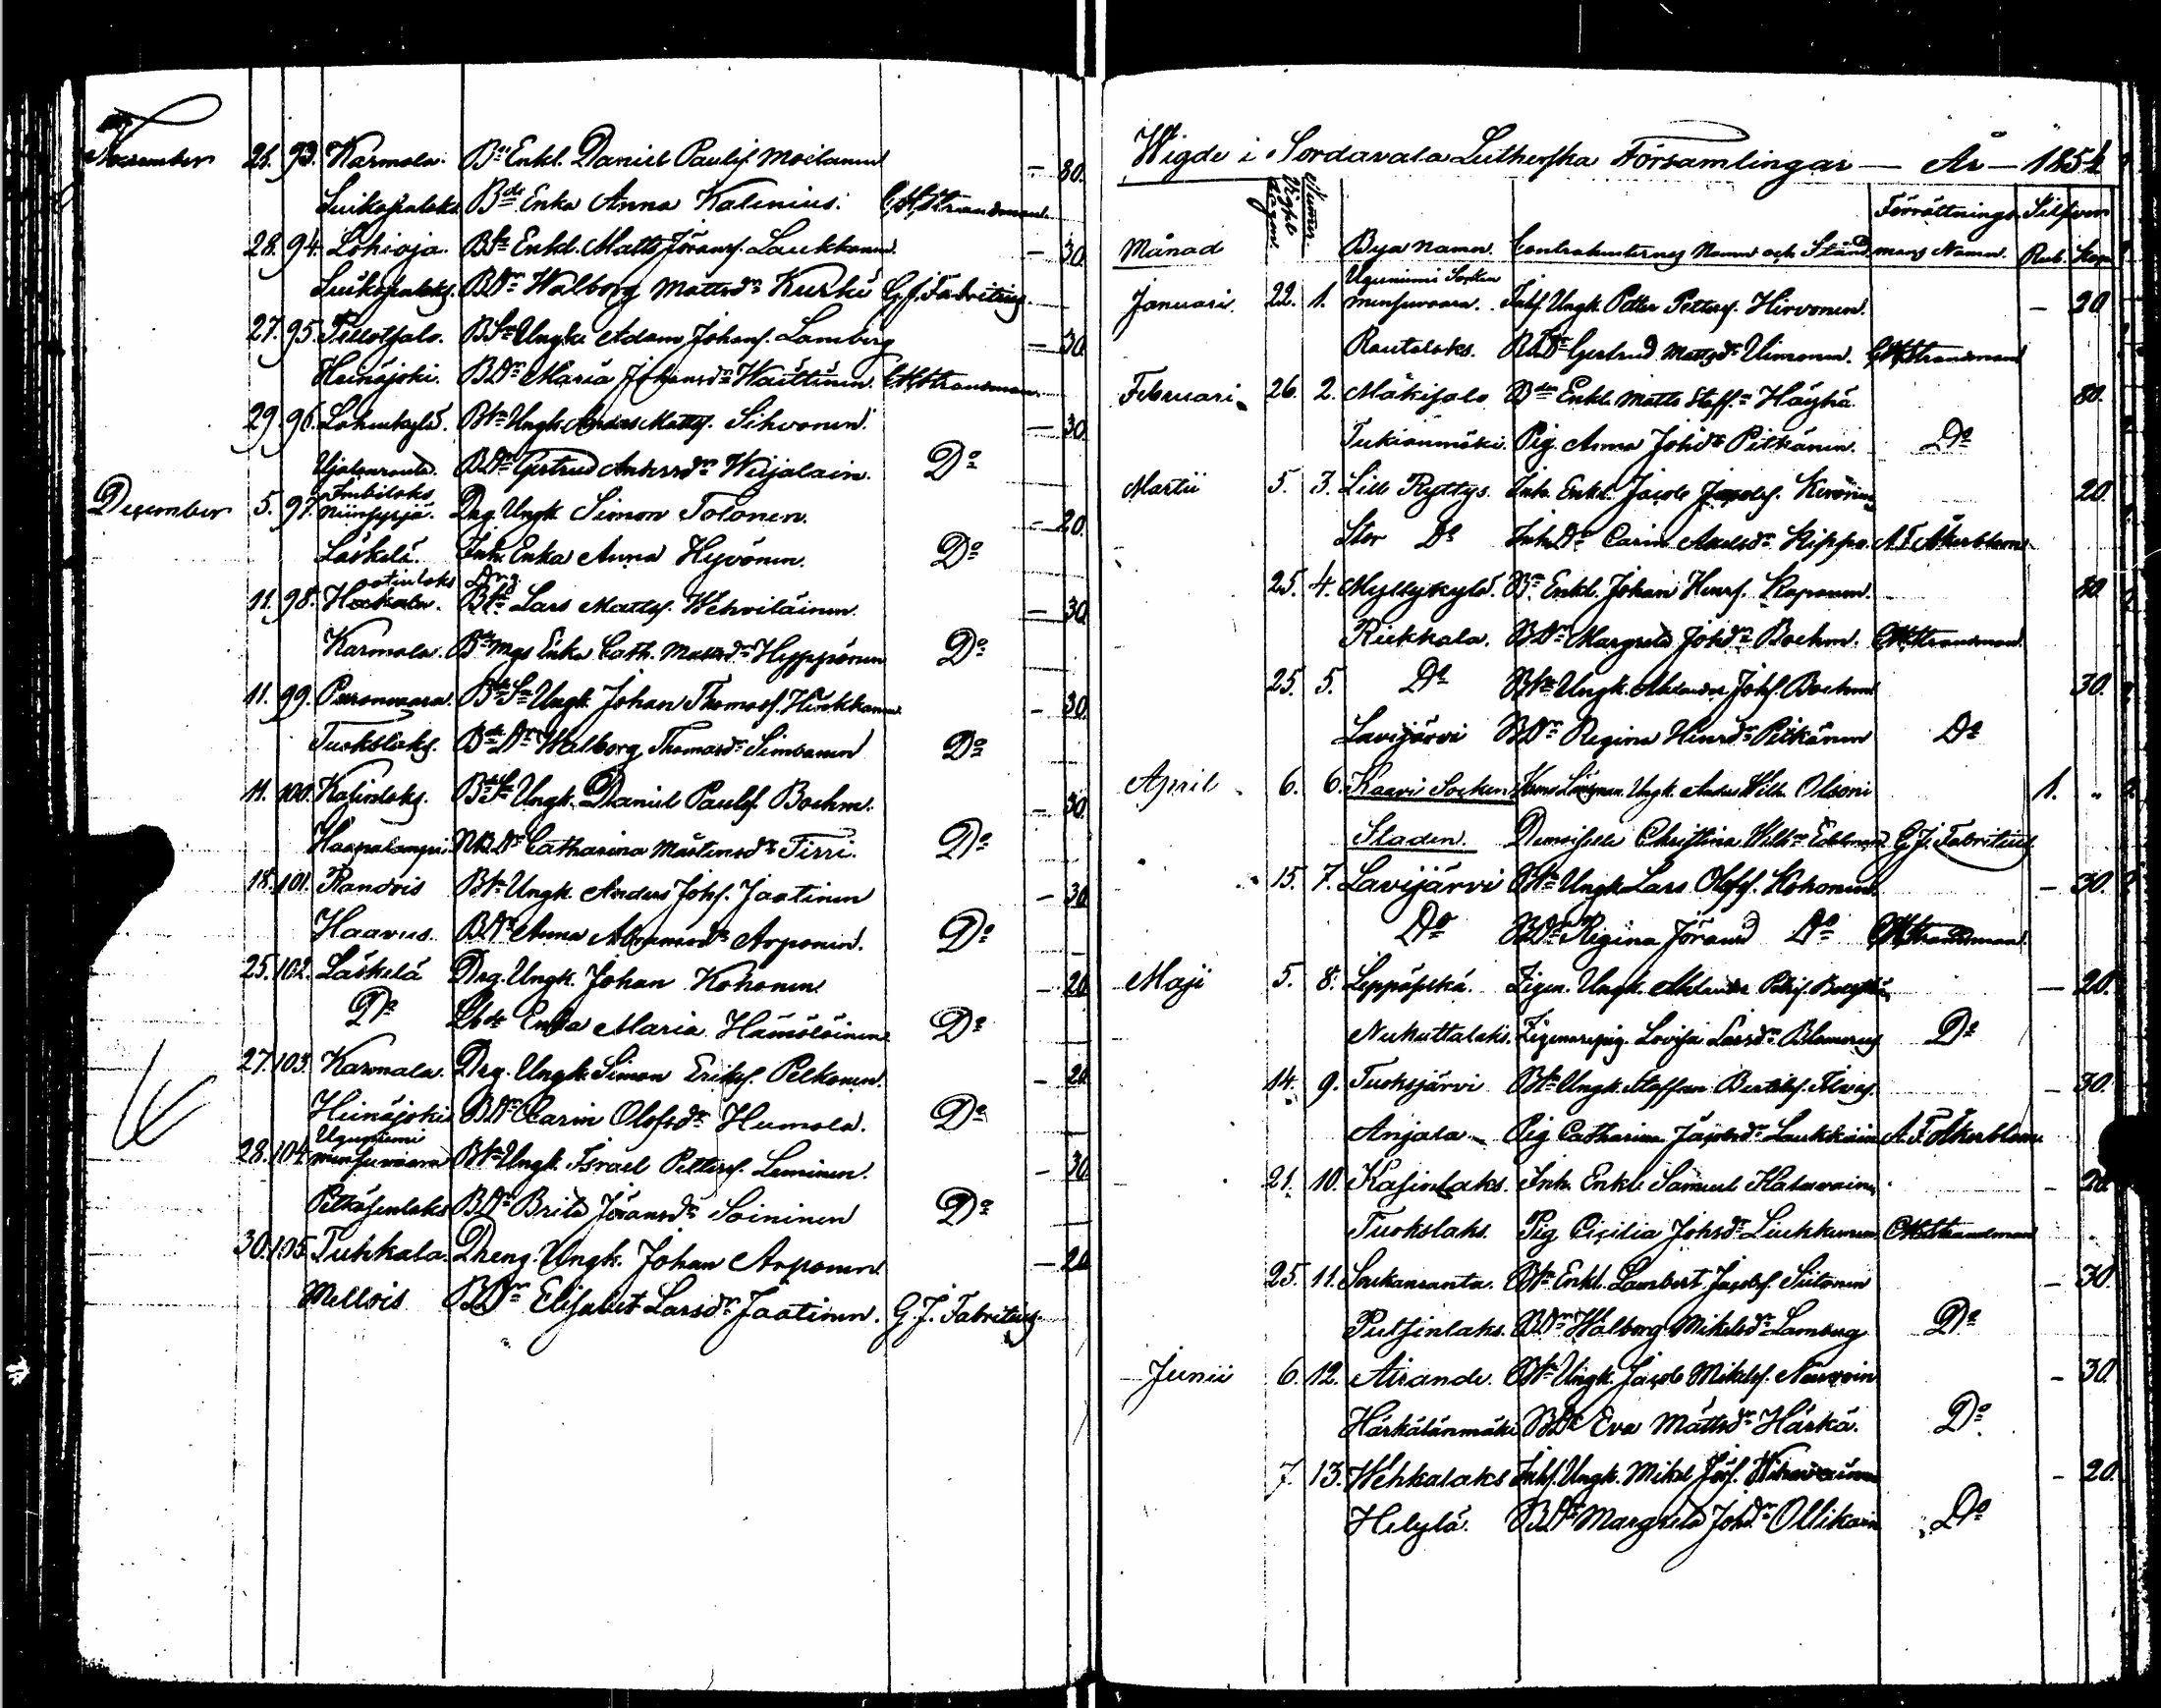 November 21. 93. Karmala. Bdn Enkl. Daniel Paulss. Moilanen — 80.
Suikapalaks Bde Enka Anna Kalinius. C.H. Strandman
28. 94. Lohioja. Bsn Enkl. Matts Jöranss. Laukkanen — 30.
Suikapalaks. BDrn Walborg Mattsdr Kurki G.J. Fabritius
27. 95. Pellotsalo. BSn Ungk. Adam Johanss. Lamberg — 30.
Heinäjoki. BDrn Maria Johansdr Waittinen. C.H. Strandman
29. 96. BSn Ungk. Anders Mattss. Sihvonen — 30.
BDrn Gertrud Andersdr Wiijalain. Do
December 5. 97. Imbilaks Niinisyrjä. Drg. Ungk. Simon Tolonen. — 20.
Läskelä. Inh. Enka Anna Hyvönen. Do
11. 98. Drg. Lars Mattss. Wehviläinen. — 30.
Karmala. Enka Cath. Mattsdr Hyppönen Do
11. 99. BdeSn Ungk. Johan Thomass. Hirkkanen — 30.
Tuokslaks. BdeDrn Walborg Thomasdr Simvanen Do
11. 100. Kasinlaks. BdeSn Ungk. Daniel Paulss. Boehm. — 30.
Haapalampi. BDrn Catharina Mårtensdr Tirri. Do
18. 101. Randois BSn Ungk. Anders Johss. Jaatinen — 30.
Haavus. BDrn Anna Abramsdr Arponen. Do
25. 102. Läskelä Drg. Ungk. Johan Kohonen. — 20
Do Enka Maria Hämöläinen Do
27. 103. Karmala. Drg. Ungk. Simon Erikss. Pelkonen. — 20.
Heinäjoki BDrn Carin Olofsdr Humala. Do
28. 104. Uguniemi Mensuvaara BSn Ungk. Israel Petterss. Leminen. — 30.
Pitkäsenlaks BDrn Brita Jöransdr Soininen Do
30. 105. Tuhkala. Dreng. Ungk. Johan Arponen. — 20
Mellois BDrn Elisabet Larsdr Jaatinen. G.J. Fabritius
Wigde i Sordavala Lutherska Församlingar — År — 1854
Månad Wigsel dagen. Numer. Bya Namn. Contrahenternes Namn och Stånd Förrättnings mans Namn. Silfver Rub. Kop.
Januari. 22. 1. Uguniemi Socken Mensuvaara. Inhs. Ungk. Petter Petterss. Hirvonen. — 20
Rautalaks. BDrn Gertrud Mattsdr Uimonen. C.H. Strandman
Februari. 26. 2. Mäkisalo Bden Enkl. Matts Staffsn Häyhä 80.
Tukianmäki. Pig. Anna Johdr Pitkänen. Do
Martii 5. 3. Lill Ryttys. Inh. Enkl. Jacob Jacobss. Kivönen 20.
Stor Do Inh.Dr Carin Axelsdr Hippo. A.F. Åkerblom
25. 4. Myllykylä. Bn Enkl. Johan Henrss. Kaponen. 80
Riekkala. BDrn Margreta Johdr Boehm. C.H. Strandman
25. 5. Do BSn Ungk. Alexander Johss. Boehm 30.
Lavijärvi BDrn Regina Henrdr Pitkänen Do
April 6. 6. Kaavi Socken Länsman Ungk. Anders Wilh. Olsoni 1. „
Staden. Demoiselle Christina Wilhna G.J. Fabritius
15. 7. Lavijärvi BSn Ungk. Lars Olofss. Kohonen. — 30.
Do BDrn Regina Jöransd Do C.H. Strandman
Maji 5. 8. Leppäselkä. Zigen. Ungk. Alexander — 20.
Nukuttalaks. Zigenarepig. Lovisa Larsdr Blomerus Do
14. 9. Tuoksjärvi BSn Ungk. Staffan Bertilss. — 30.
Anjala Pig. Catharina Jacobsdr Laukkain A.F. Åkerblom
21. 10. Kasinlaks. Inh. Enkl. Samuel Katarvain — 20.
Tuokslaks. Pig. Cicilia Johsdr Liukkunen C.H. Strandman
25. 11. Soukanranta. BSn Enkl. Lambert Jacobss. Siitonen — 30.
Putsinlaks. BDrn Walborg Mikelsdr Lamberg Do
Junii 6. 12. Airande. BSn Ungk. Jacob Mikelss. — 30.
Härkälänmäki BDrn Eva Mattsdr Härkä. Do
7. 13. Wehkalaks Inhs. Ungk. Mikel — 20.
Helylä. BDrn Margreta Johdr Ollikain Do